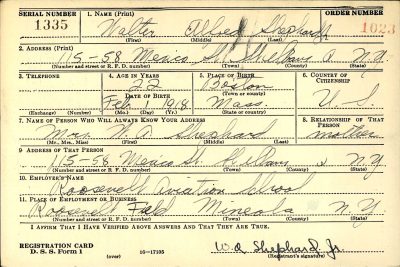 SERIAL NUMBER 1. NAME (Print) ORDER NUMBER
1335 Walter Alfred Shephard Jr 1023
(First) (Middle) (Last)
2. ADDRESS (Print)
115-58 Mexico St. St. Albans N.Y.
(Number and street or R. F. D. number) (Town) (County) (State)
3. TELEPHONE 4. AGE IN YEARS 5. PLACE OF BIRTH 6. COUNTRY OF CITIZENSHIP
22 Boston
DATE OF BIRTH (Town or county)
Feb. 1 1918 Mass. U. S.
(Exchange) (Number) (Mo.) (Day) (Yr.) (State or country)
7. NAME OF PERSON WHO WILL ALWAYS KNOW YOUR ADDRESS 8. RELATIONSHIP OF THAT PERSON
Mrs. W. A. Shephard mother
(Mr., Mrs., Miss) (First) (Middle) (Last)
9. ADDRESS OF THAT PERSON
115-58 Mexico St. St. Albans N.Y.
(Number and street or R. F. D. number) (Town) (County) (State)
10. EMPLOYER'S NAME
Roosevelt Aviation School
11. PLACE OF EMPLOYMENT OR BUSINESS
Roosevelt Field Mineola N.Y.
(Number and street or R. F. D. number) (Town) (County) (State)
I AFFIRM THAT I HAVE VERIFIED ABOVE ANSWERS AND THAT THEY ARE TRUE.
REGISTRATION CARD
D. S. S. Form 1 (over) 16-17105 W. A. Shephard Jr.
(Registrant's signature)